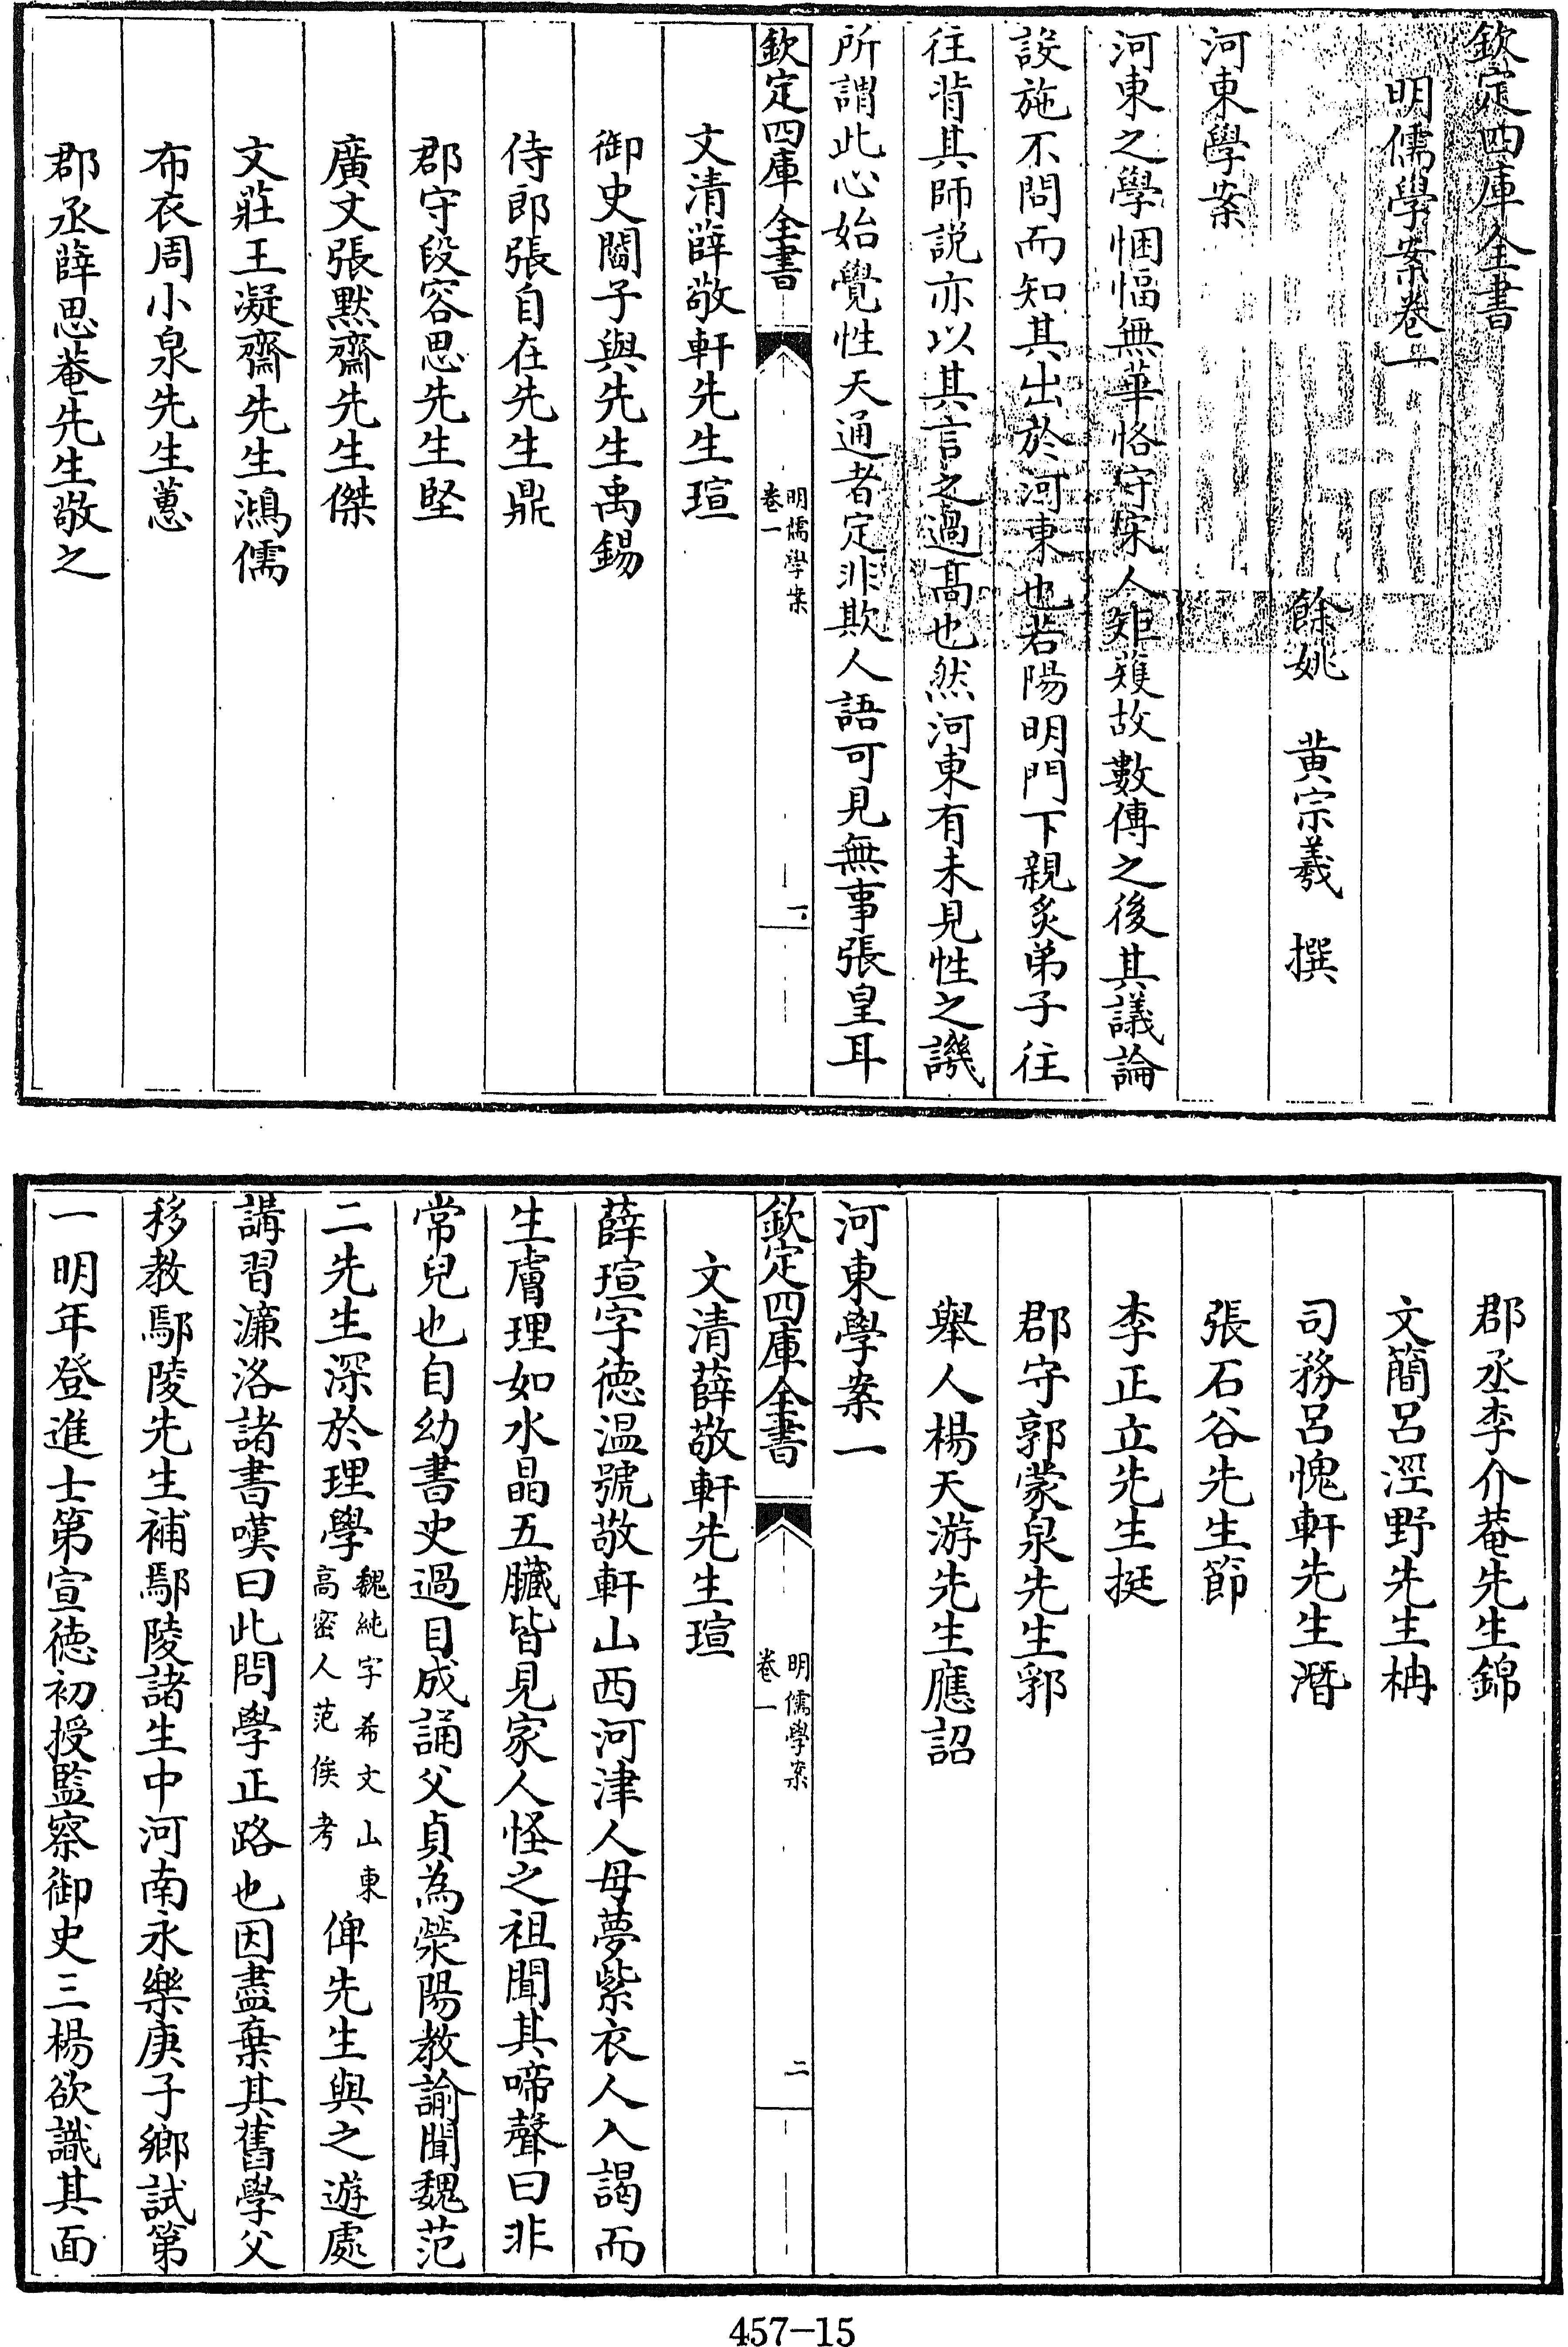 欽定四庫全書
明儒學案卷一
餘姚 黄宗羲 撰
河東學案
河東之學悃愊無華恪守宋人矩矱故數傳之後其議論
設施不問而知其出於河東也若陽明門下親炙弟子往
往背其師説亦以其言之過髙也然河東有未見性之譏
所謂此心始覺性天通者定非欺人語可見無事張皇耳
欽定四庫全書
明儒學案
卷一
一
文清薛敬軒先生瑄
御史閻子與先生禹錫
侍郎張自在先生鼎
郡守段容思先生堅
廣文張黙齋先生傑
文莊王凝齋先生鴻儒
布衣周小泉先生蕙
郡丞薛思菴先生敬之
郡丞李介菴先生錦
文簡呂涇野先生柟
司務呂愧軒先生潛
張石谷先生節
李正立先生挺
郡守郭蒙泉先生郛
舉人楊天游先生應詔
河東學案一
欽定四庫全書
明儒學案
卷一
二
文清薛敬軒先生瑄
薛瑄字徳温號敬軒山西河津人母夢紫衣人入謁而
生膚理如水晶五臟皆見家人怪之祖聞其啼聲曰非
常兒也自幼書史過目成誦父貞為滎陽教諭聞魏范
二先生深於理學
魏純字希文山東
高密人范俟考
俾先生與之遊處
講習濂洛諸書嘆曰此問學正路也因盡棄其舊學父
移教鄢陵先生補鄢陵諸生中河南永樂庚子鄉試第
一明年登進士第宣徳初授監察御史三楊欲識其面
457-15